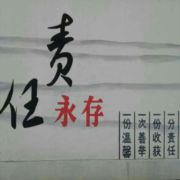 责任
永存
分责任
一份收获
一次善举
一份温馨